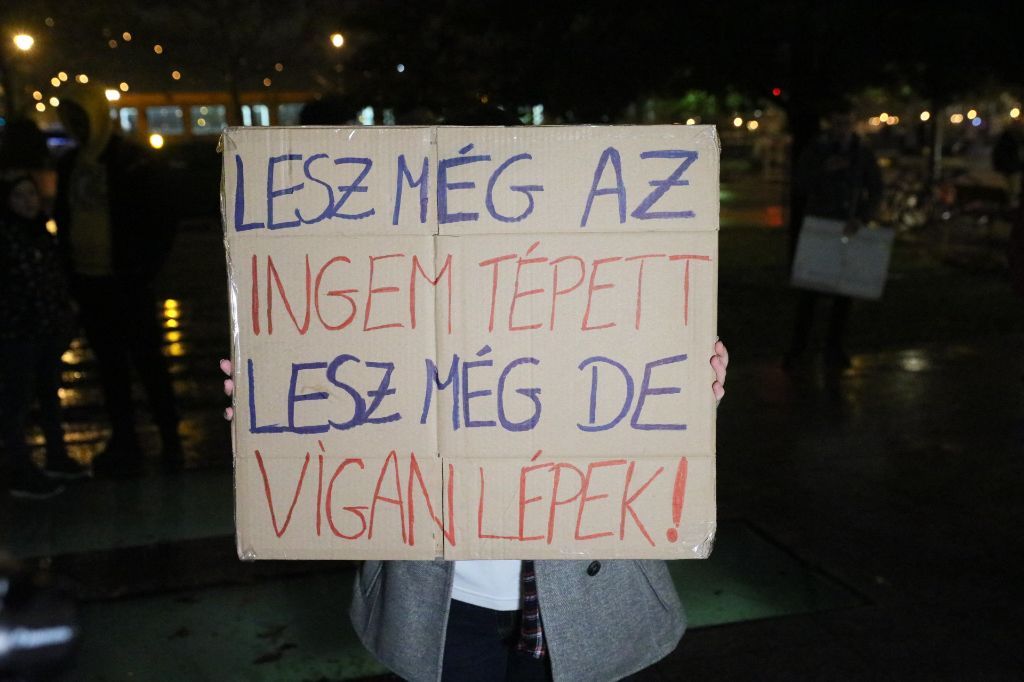 LESZ MÉG AZ
INGEM TÉPETT
LESZ MÉG DE
VÌGAN LÉPEK!